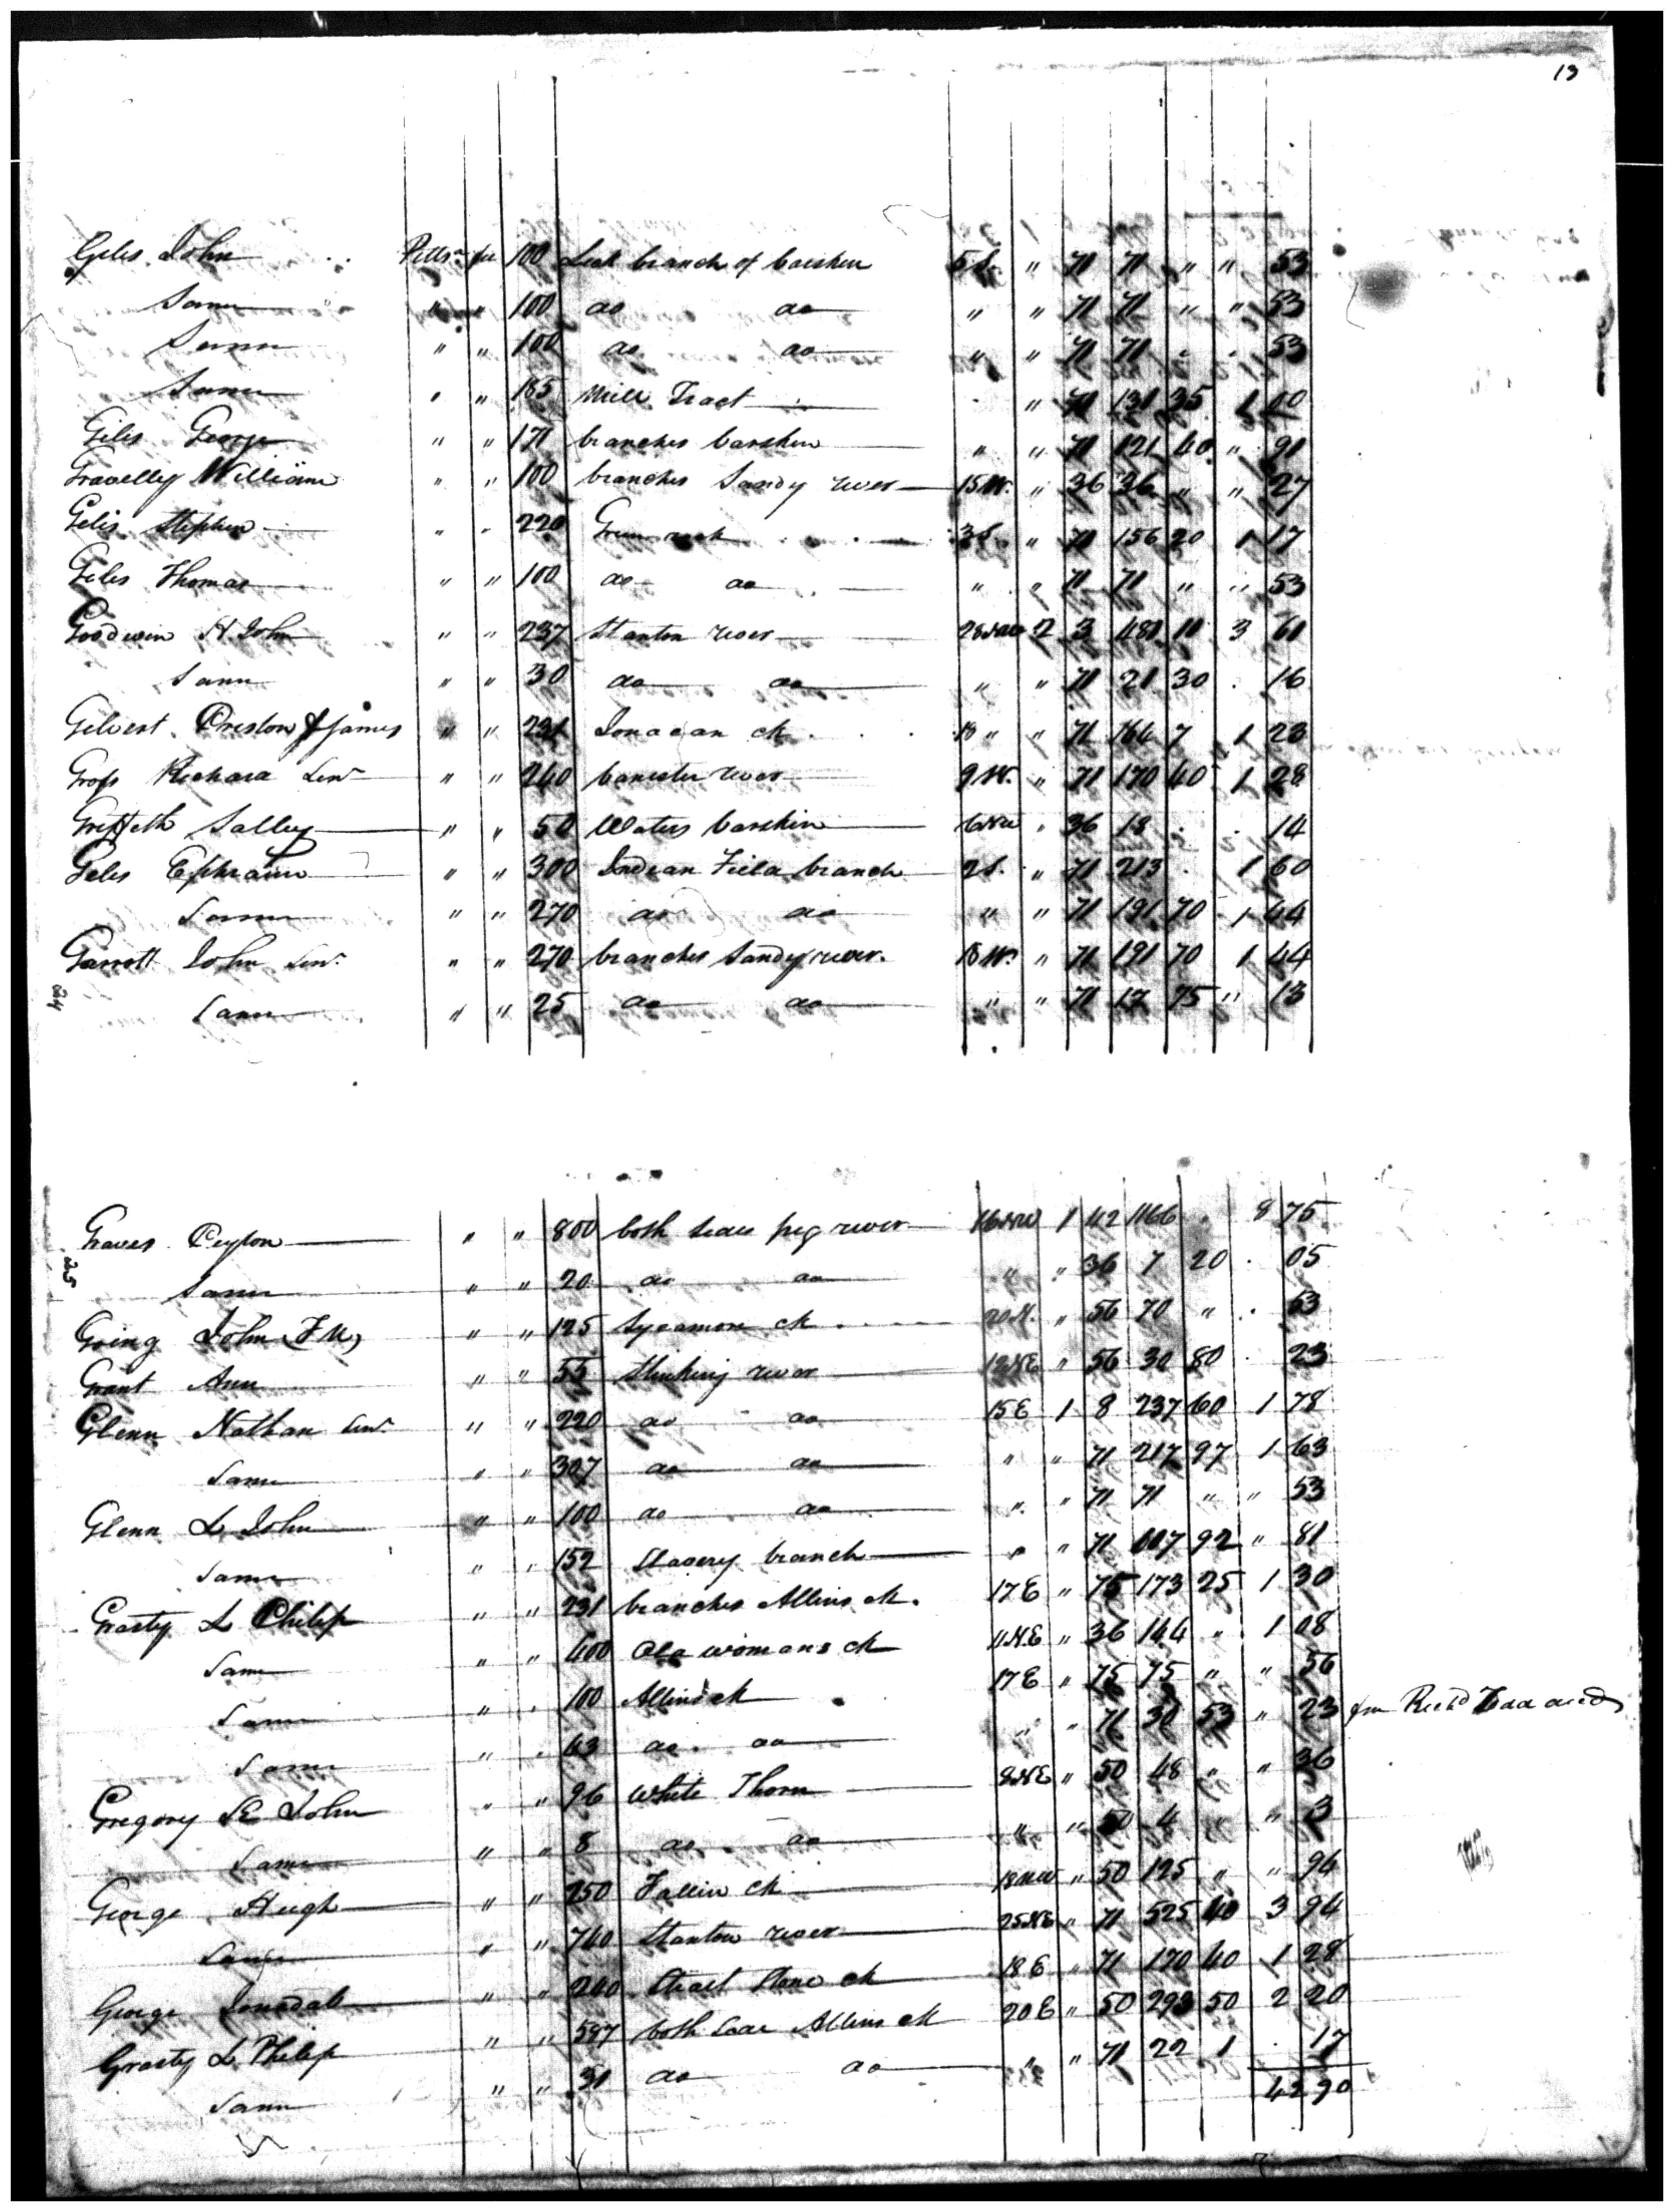 13
Giles John Pitts. fee 100 Leak branch of barskin 5 S. " 71 71 " " 53
Same " " 100 do do " " 71 71 " " 53
Same " " 100 do do " " 71 71 53
Same " " 185 Mill Tract " 71 131 35 1 00
Giles George " " 171 branches barskin " " 71 121 40 " 91
Gravelly William " " 100 branches Sandy river 15 W. " 36 36 " " 27
Giles Stephen " " 220 3 S. " 71 156 20 1 17
Giles Thomas " " 100 do do " " 71 71 " " 53
Goodwin H. John " " 237 Stanton river 28 2 3 481 11 3 61
Same " " 30 do do " " 71 21 30 . 16
Gilbert Preston & James " " 231 ck 18 " " 71 164 7 1 23
Gross Richard Senr " " 240 banister river 9 W. " 71 170 40 1 28
Griffeth Salley " " 50 Waters barskin 6 NW " 36 18 . . 14
Giles Ephraim " " 300 Indian Field branch 2 S. " 71 213 . 1 60
Same " " 270 do do " " 71 191 70 1 44
Garrott John Senr " " 270 branches Sandy river. 18 W. " 71 191 70 1 44
24 Same " " 25 do do " " 71 17 75 " 13
Graves Peyton " " 800 both sides pig river 16 NW 1 42 1166 . 8 75
25 Same " " 20 do do " " 36 7 20 . 05
Going John (F N) " " 125 Sycamore ck 20 N. " 56 70 " . 53
Grant Ann " " 55 Stinking river 12 NE " 56 30 80 . 23
Glenn Nathan Senr " " 220 do do 15 E 1 8 237 60 1 78
Same " " 307 do do " " 71 217 97 1 63
Glenn L. John " " 100 do do " " 71 71 " " 53
Same " " 152 branch " " 71 107 92 " 81
Grasty L Philip " " 231 branches Allins ck. 17 E " 75 173 25 1 30
Same " " 400 Old womans ck 11 N.E " 36 144 " 1 08
Same " " 100 Allins ck 17 E " 75 75 " " 56
Same " " 43 do do " " 71 30 53 " 23 from Richd Todd decd
Gregory John " " 96 White Thorn 8 NE " 50 48 " " 36
Same " " 8 do do " " 50 4 " " 3
George Hugh " " 250 Fallin ck 18 NW " 50 125 " " 94
Same " " 740 Stanton river 25 NE " 71 525 40 3 94
George " " 240 Strait Stone ck 18 E " 71 170 40 1 28
Grasty L. Philip " " 587 both side Allins ck 20 E " 50 293 50 2 20
Same " " 31 do do " " 71 22 1 . 17
42 90